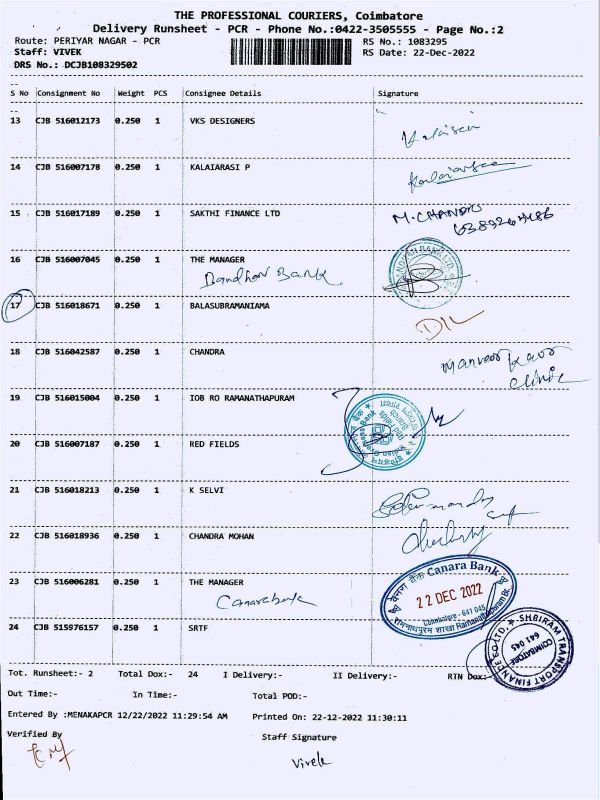 THE PROFESSIONAL COURIERS, Coimbatore
Delivery Runsheet - PCR - Phone No.:0422-3505555 - Page No.:2
Route: PERIYAR NAGAR - PCR
Staff: VIVEK
DRS No.: DCJB108329502
RS No.: 1083295
RS Date: 22-Dec-2022
S No Consignment No Weight PCS Consignee Details Signature
13 CJB 516012173 0.250 1 VKS DESIGNERS
14 CJB 516007178 0.250 1 KALAIARASI P
15 CJB 516017189 0.250 1 SAKTHI FINANCE LTD M.CHANDRU
16 CJB 516007045 0.250 1 THE MANAGER
Bandhan Bank
17 CJB 516018671 0.250 1 BALASUBRAMANIAMA
18 CJB 516042587 0.250 1 CHANDRA
Manveer Kaur
Clinic
19 CJB 516015004 0.250 1 IOB RO RAMANATHAPURAM
20 CJB 516007187 0.250 1 RED FIELDS
21 CJB 516018213 0.250 1 K SELVI
22 CJB 516018936 0.250 1 CHANDRA MOHAN
23 CJB 516006281 0.250 1 THE MANAGER
Canara bank
केनरा बैंक Canara Bank
22 DEC 2022
Coimbatore - 641 045
24 CJB 515976157 0.250 1 SRTF
SHRIRAM TRANSPORT FINANCE CO LTD.
COIMBATORE
641 045
Tot. Runsheet:- 2 Total Dox:- 24 I Delivery:- II Delivery:- RTN Dox:-
Out Time:- In Time:- Total POD:-
Entered By :MENAKAPCR 12/22/2022 11:29:54 AM Printed On: 22-12-2022 11:30:11
Verified By Staff Signature
Vivek